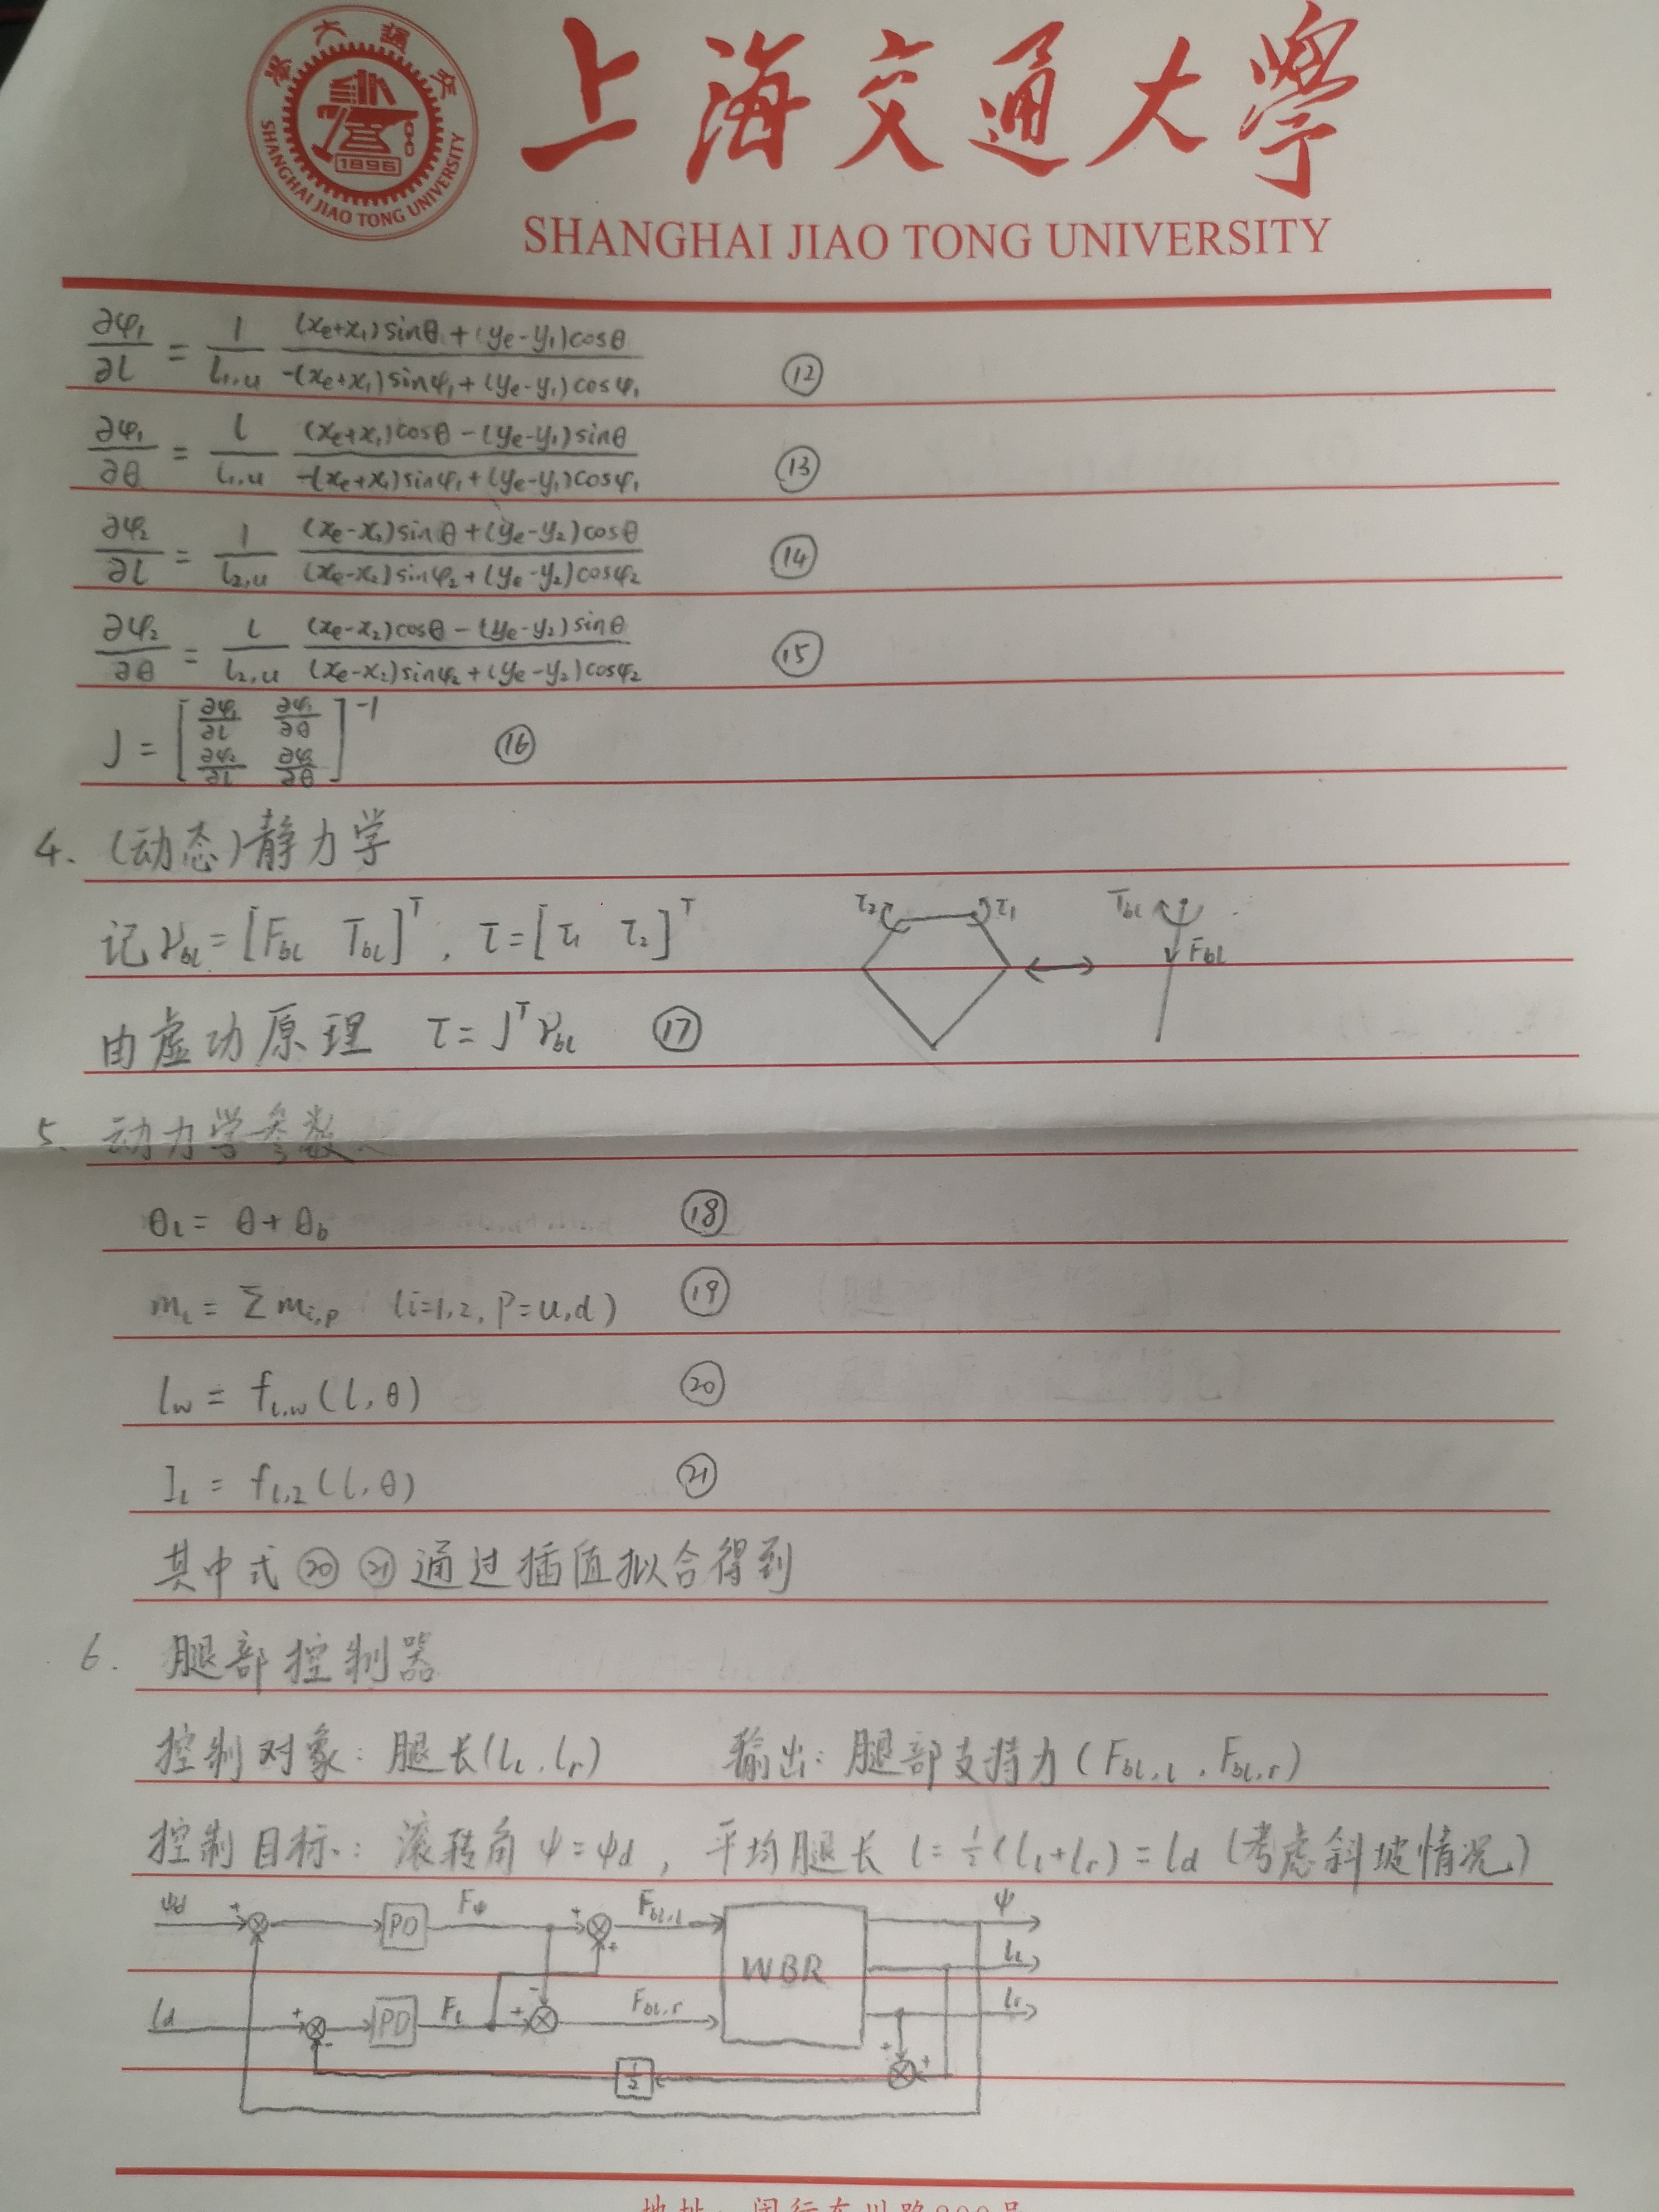 上海交通大學
SHANGHAI JIAO TONG UNIVERSITY
1896
SHANGHAI JIAO TONG UNIVERSITY
∂φ₁/∂l = 1/l₁,u · ((xe+x₁)sinθ+(ye-y₁)cosθ)/(-(xe+x₁)sinφ₁+(ye-y₁)cosφ₁) ⑫
∂φ₁/∂θ = l/l₁,u · ((xe+x₁)cosθ-(ye-y₁)sinθ)/(-(xe+x₁)sinφ₁+(ye-y₁)cosφ₁) ⑬
∂φ₂/∂l = 1/l₂,u · ((xe-x₂)sinθ+(ye-y₂)cosθ)/((xe-x₂)sinφ₂+(ye-y₂)cosφ₂) ⑭
∂φ₂/∂θ = l/l₂,u · ((xe-x₂)cosθ-(ye-y₂)sinθ)/((xe-x₂)sinφ₂+(ye-y₂)cosφ₂) ⑮
J = [∂φ₁/∂l ∂φ₁/∂θ; ∂φ₂/∂l ∂φ₂/∂θ]⁻¹ ⑯
4. (动态)静力学
记γbl = [Fbl Tbl]ᵀ, τ = [τ₁ τ₂]ᵀ
τ₂ τ₁ Tbl Fbl
由虚功原理 τ = Jᵀγbl ⑰
5. 动力学参数
θl = θ+θb ⑱
ml = Σmi,p (i=1,2, p=u,d) ⑲
lw = fl,w(l,θ) ⑳
Il = fl,2(l,θ) ㉑
其中式⑳㉑通过插值拟合得到
6. 腿部控制器
控制对象: 腿长(ll, lr) 输出: 腿部支持力(Fbl,l, Fbl,r)
控制目标: 滚转角ψ=ψd, 平均腿长 l=½(ll+lr)=ld (考虑斜坡情况)
ψd + PD Fψ + + Fbl,l WBR ψ
ll
ld + - PD Fl + - Fbl,r lr
½ + +